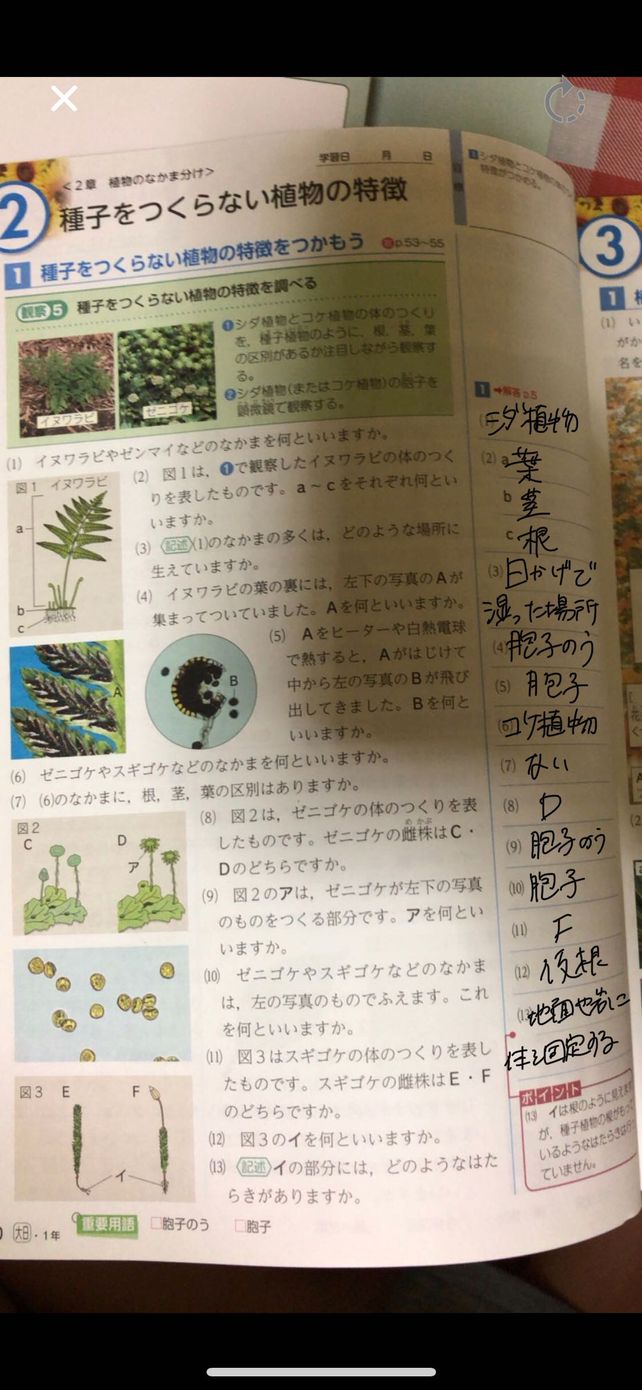 学習日 月 日
<2章 植物のなかま分け>
2 種子をつくらない植物の特徴
1 種子をつくらない植物の特徴をつかもう 教p.53~55
観察5 種子をつくらない植物の特徴を調べる
❶シダ植物とコケ植物の体のつくり
を、種子植物のように、根、茎、葉
の区別があるか注目しながら観察す
る。
❷シダ植物(またはコケ植物)の胞子を
顕微鏡で観察する。
イヌワラビ
ゼニゴケ
(1) イヌワラビやゼンマイなどのなかまを何といいますか。
図1 イヌワラビ
a
b
c
(2) 図1は、❶で観察したイヌワラビの体のつく
りを表したものです。a~cをそれぞれ何とい
いますか。
(3) 記述 (1)のなかまの多くは、どのような場所に
生えていますか。
(4) イヌワラビの葉の裏には、左下の写真のAが
集まってついていました。Aを何といいますか。
A
B
(5) Aをヒーターや白熱電球
で熱すると、Aがはじけて
中から左の写真のBが飛び
出してきました。Bを何と
いいますか。
(6) ゼニゴケやスギゴケなどのなかまを何といいますか。
(7) (6)のなかまに、根、茎、葉の区別はありますか。
図2
C
D
ア
(8) 図2は、ゼニゴケの体のつくりを表
したものです。ゼニゴケの雌株はC・
めかぶ
Dのどちらですか。
(9) 図2のアは、ゼニゴケが左下の写真
のものをつくる部分です。アを何とい
いますか。
(10) ゼニゴケやスギゴケなどのなかま
は、左の写真のものでふえます。これ
を何といいますか。
(11) 図3はスギゴケの体のつくりを表し
たものです。スギゴケの雌株はE・F
のどちらですか。
図3 E F
イ
(12) 図3のイを何といいますか。
(13) 記述 イの部分には、どのようなはた
らきがありますか。
大日・1年
重要用語 □胞子のう □胞子
シダ植物とコケ植物の
特徴がつかめる。
1 ➡解答p.5
シダ植物
(2) a 葉
b 茎
c 根
(3) 日かげで
湿った場所
(4) 胞子のう
(5) 胞子
(6) コケ植物
(7) ない
(8) D
(9) 胞子のう
(10) 胞子
(11) F
(12) 仮根
(13) 地面や岩に
体を固定する
ポイント
(13) イは根のように見えま
が、種子植物の根がもっ
いるようなはたらきは行
ていません。
3
1
(1) い
がか
名を